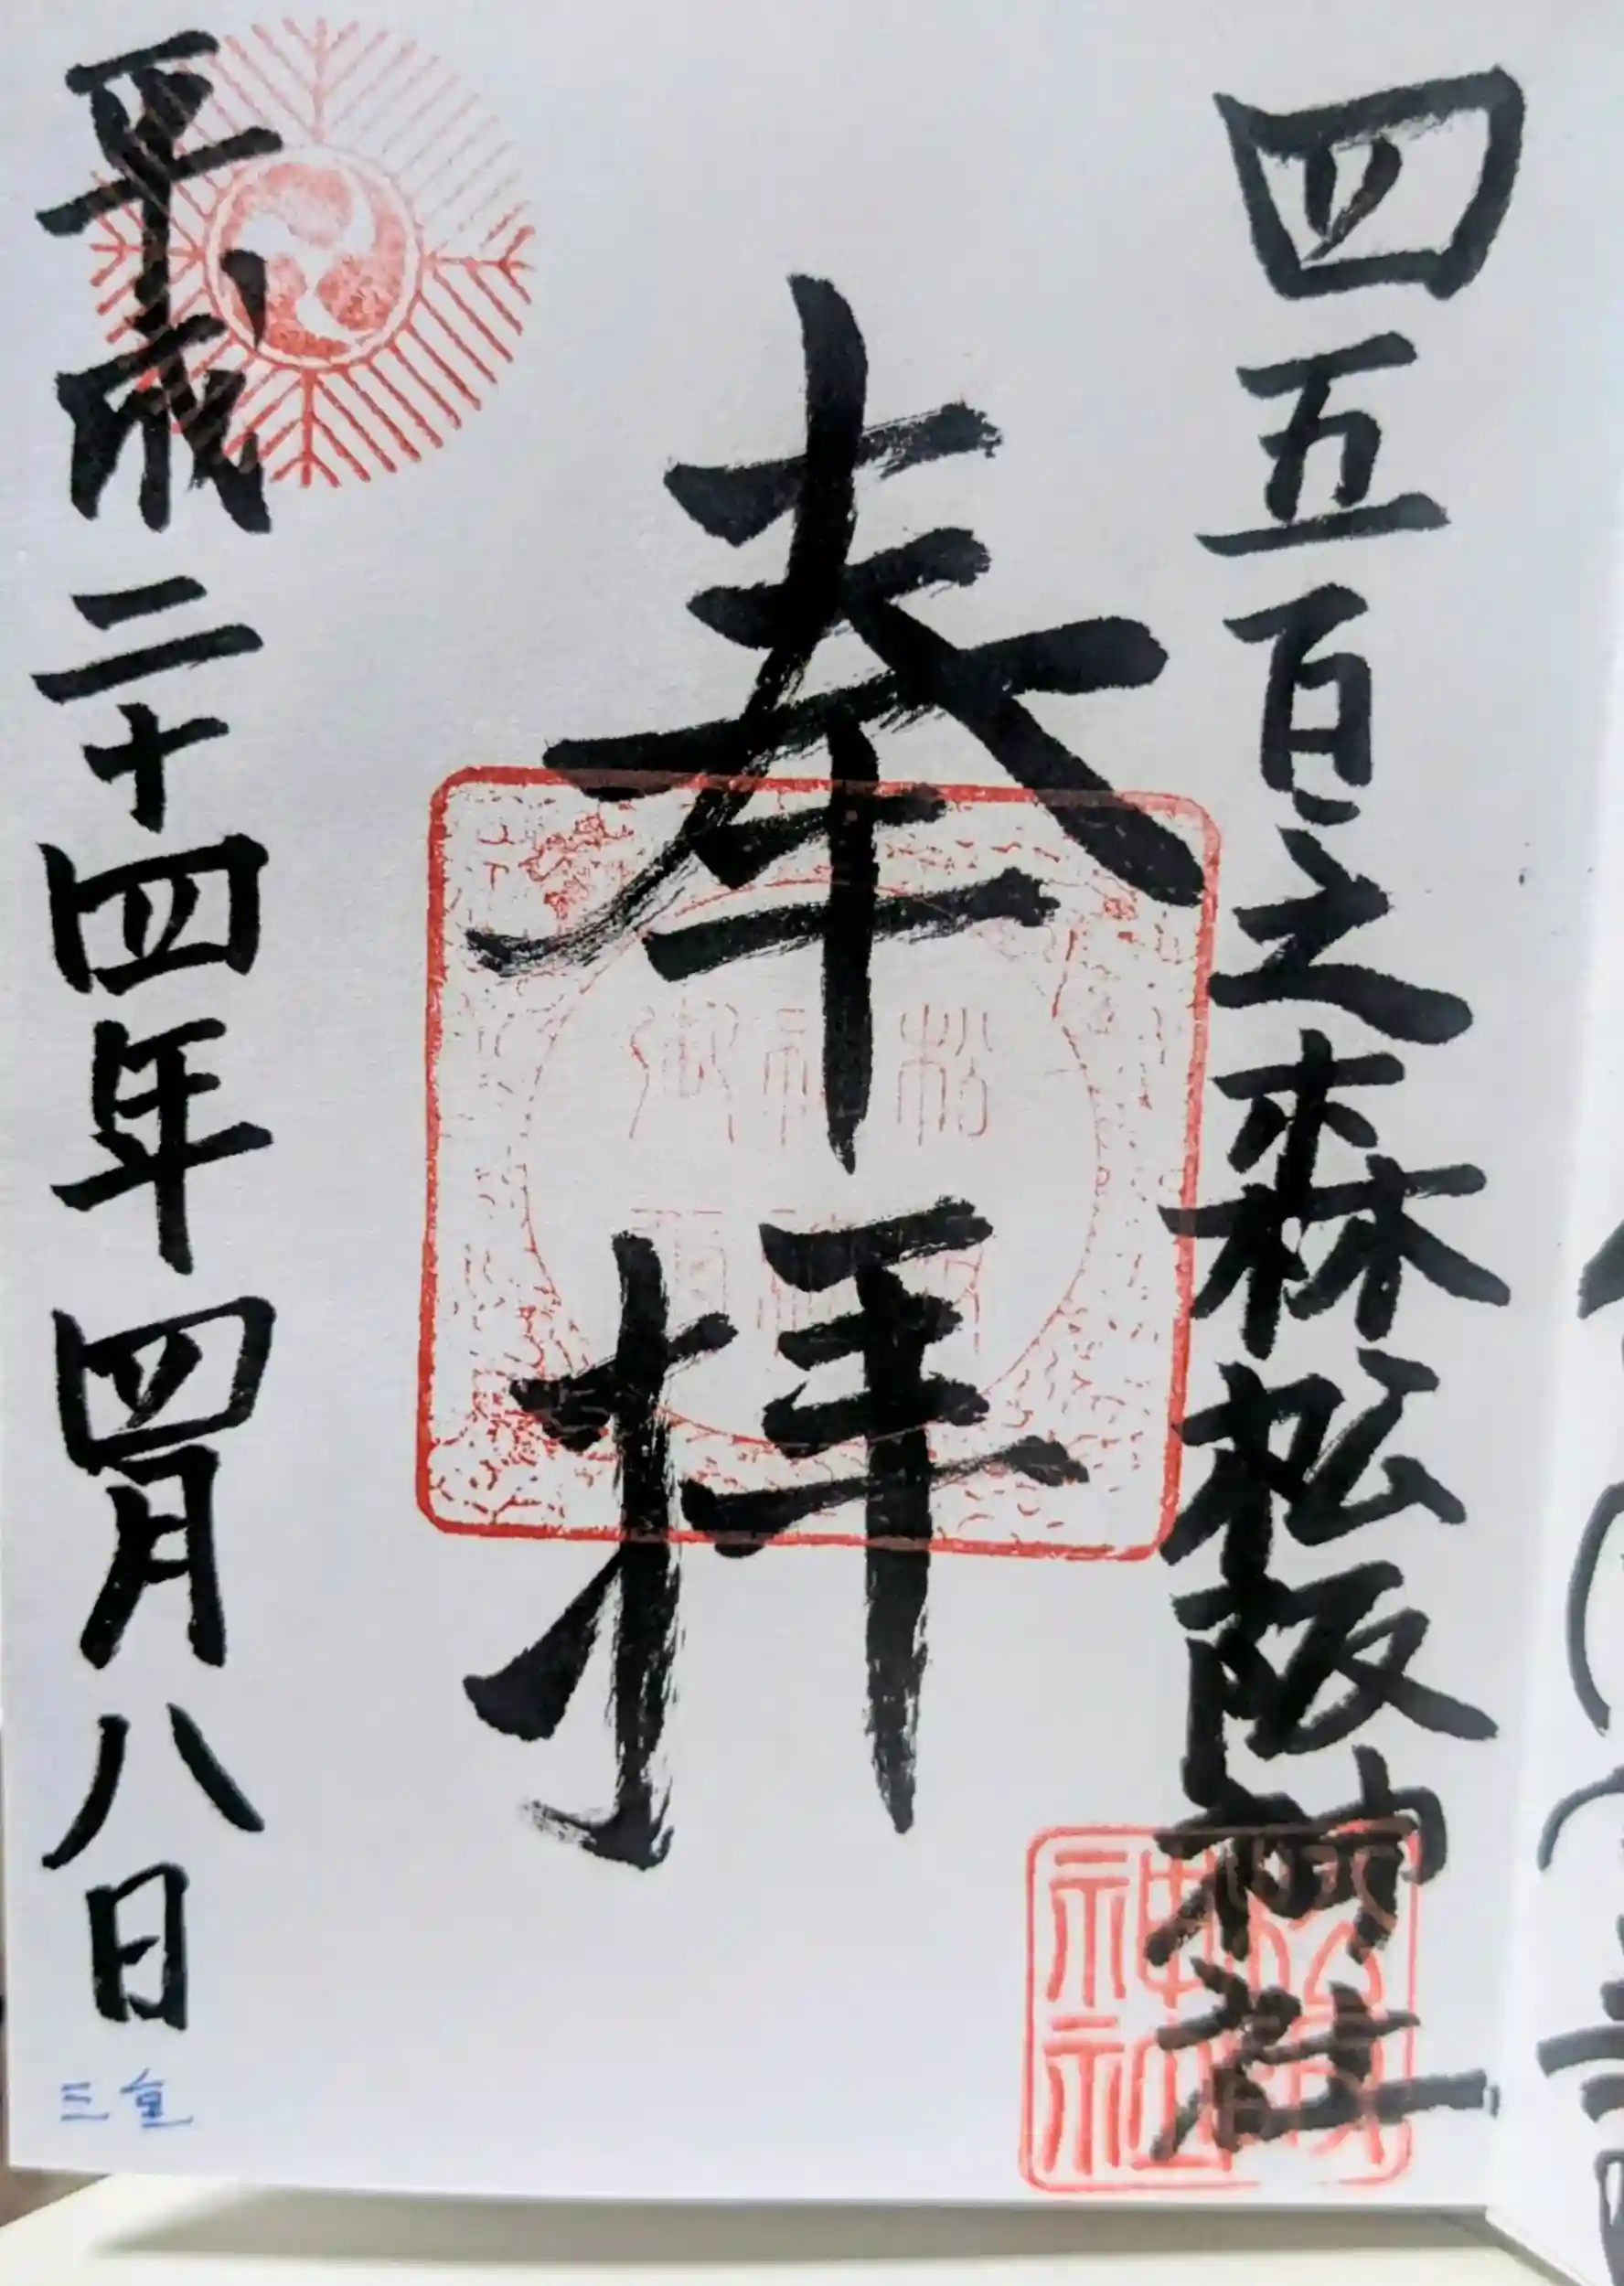 四五百之森松阪神社
奉拝
平成二十四年四月八日
三重
松阪神社